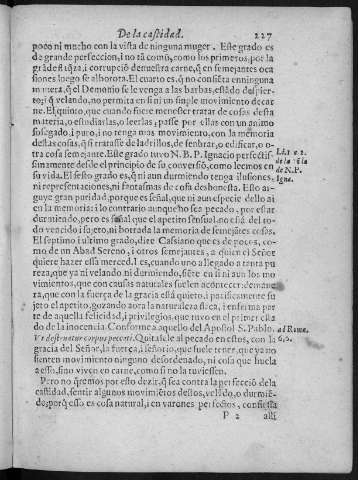 De la castidad. 227
poco ni mucho con la vista de ninguna muger. Este grado es
de grande perfeccion, i no tã comũ, como los primeros, por la
grãde flaqza, i corrupciõ de nuestra carne, q̃ en semejantes oca
siones luego se alborota. El cuarto es, q̃ no consiẽta en ninguna
manera, q̃ el Demonio se le venga a las barbas, estãdo despier-
to; i q̃ velando, no permita en si ni un simple movimiento decar
ne. El quinto, que cuando fuere menester tratar de cosas desta
materia, o estudiarlas, o leerlas; passe por ellas con un animo
sosegado, i puro, i no tenga mas movimiento, con la memoria
destas cosas, q̃ si tratasse de ladrillos, de senbrar, o edificar, o o-
tra cosa semejante. Este grado tuvo N. B. P. Ignacio perfectis-
simamente desde el principio de su conversiõ, como leemos en
su vida. El sexto grado es, q̃ ni aun durmiendo tenga ilusiones,
ni representaciones, ni fantasmas de cosa deshonesta. Esto ar-
guye gran puridad, porque es señal, que ni aun especie dello ai
en la memoria: i lo contrario aunque no sea pecado, por estar
durmiendo, pero es señal que el apetito sensual no està del to-
do vencido i sujeto, ni borrada la memoria de semejãtes cosas.
El septimo i ultimo grado, dize Cassiano que es de pocos, co-
mo de un Abad Sereno, i otros semejantes, a quien el Señor
quiere hazer essa merced. I es, cuando uno a llegado a tanta pu
reza, que ya ni velando ni durmiẽdo, siẽte en si ni aun los mo
vimientos, que con causas naturales suelen acontecer: demane
ra, que con la fuerça de la gracia està quieto, i pacificamente su
jeto el apetito, gozando aora la naturaleza flaca, i enferma par
te de aquella felicidad, i privilegios, que tuvo en el primer esta
do de la inocencia. Conforme a aquello del Apostol S. Pablo,
Vt destruatur corpus peccati. Quitasele al pecado en estos, con la
gracia del Señor, la fuerça, i señorio, que suele tener, que ya no
sienten movimiento ninguno desordenado, ni cosa que huela
a esso, sino viven en carne, como si no la tuviessen.
Pero no q̃remos por esto dezir, q̃ sea contra la perfecciõ dela
castidad, sentir algunos movimiẽtos destos, velãdo, o durmiẽ-
do; porq̃ esso es cosa natural, i en varones perfectos,
P 2 assi
de la
de N. P.
Igna.
ad Rom.
6, 6.